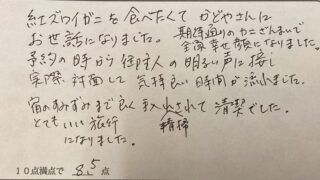 紅ズワイガニを食べたくてかどやさんに
お世話になりました。期待通りのカニざんまいで
全員幸せ顔になりました。
予約の時から御主人の明るい声に接し
実際、対面して気持良い時間が流れました。
宿のすみずみまで良く清掃されて清潔でした。
とてもいい旅行
になりました。
10点満点で 8.5 点